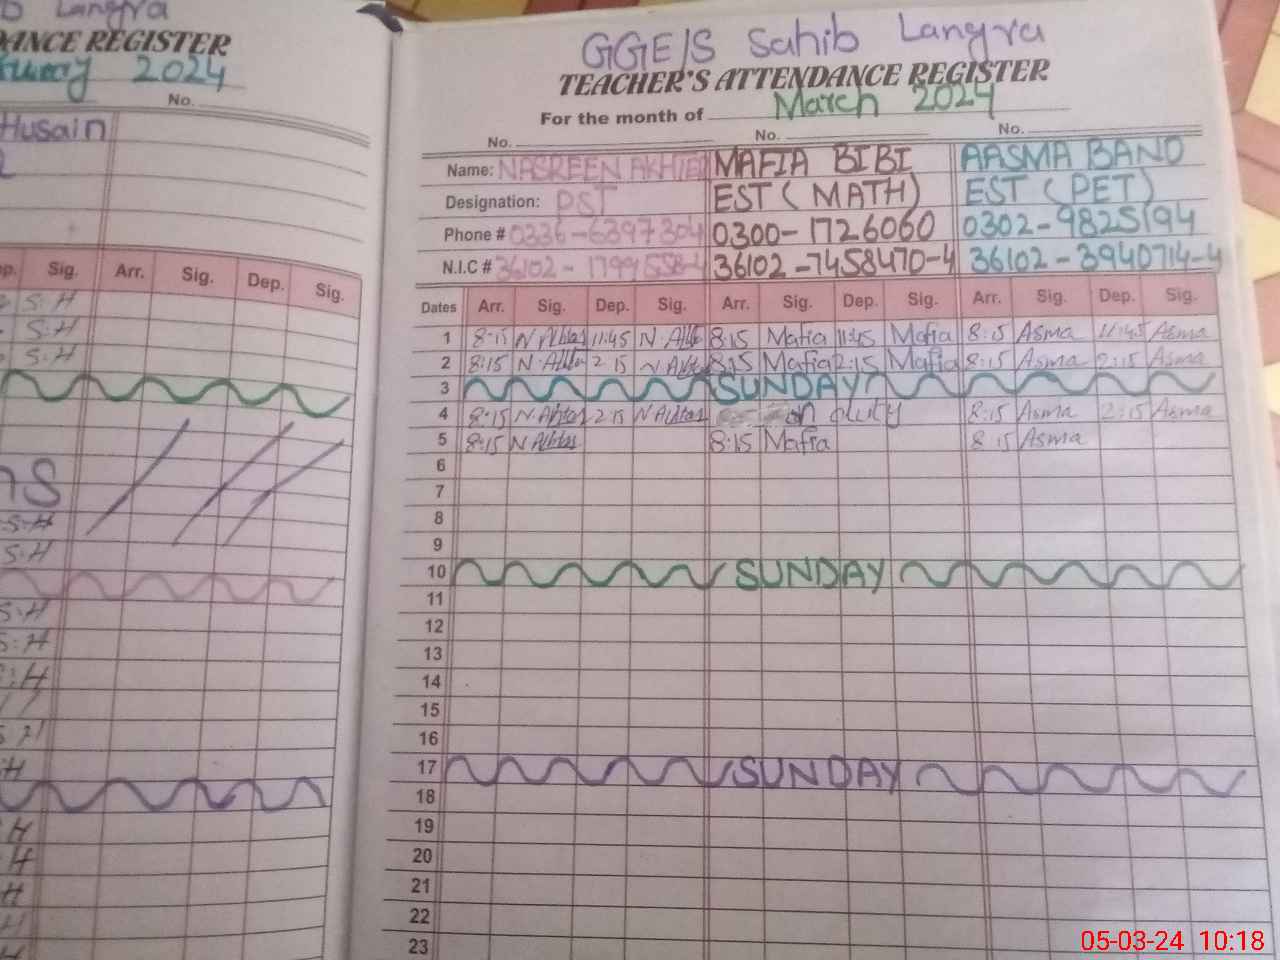 Langra
ANCE REGISTER
2024
No.
Husain
Sig. Arr. Sig. Dep. Sig.
S.H
S.H
S.H
S.H
S.H
S.H
S.H
S.H
GGE/S Sahib Langra
TEACHER'S ATTENDANCE REGISTER
For the month of March 2024
No. No. No.
Name: NASREEN AKHTER MAFIA BIBI AASMA BANO
Designation: PST EST (MATH) EST (PET)
Phone # 0336-6397304 0300-1726060 0302-9825194
N.I.C # 36102-1799558-4 36102-7458470-4 36102-3940714-4
Dates Arr. Sig. Dep. Sig. Arr. Sig. Dep. Sig. Arr. Sig. Dep. Sig.
1 8:15 N.Akhtar 11:45 N.Akhtar 8:15 Mafia 11:45 Mafia 8:15 Asma 11:45 Asma
2 8:15 N.Akhtar 2:15 N.Akhtar 8:15 Mafia 2:15 Mafia 8:15 Asma 2:15 Asma
3 SUNDAY
4 8:15 N.Akhtar 2:15 N.Akhtar on duty 8:15 Asma 2:15 Asma
5 8:15 N.Akhtar 8:15 Mafia 8:15 Asma
6
7
8
9
10 SUNDAY
11
12
13
14
15
16
17 SUNDAY
18
19
20
21
22
23
05-03-24 10:18